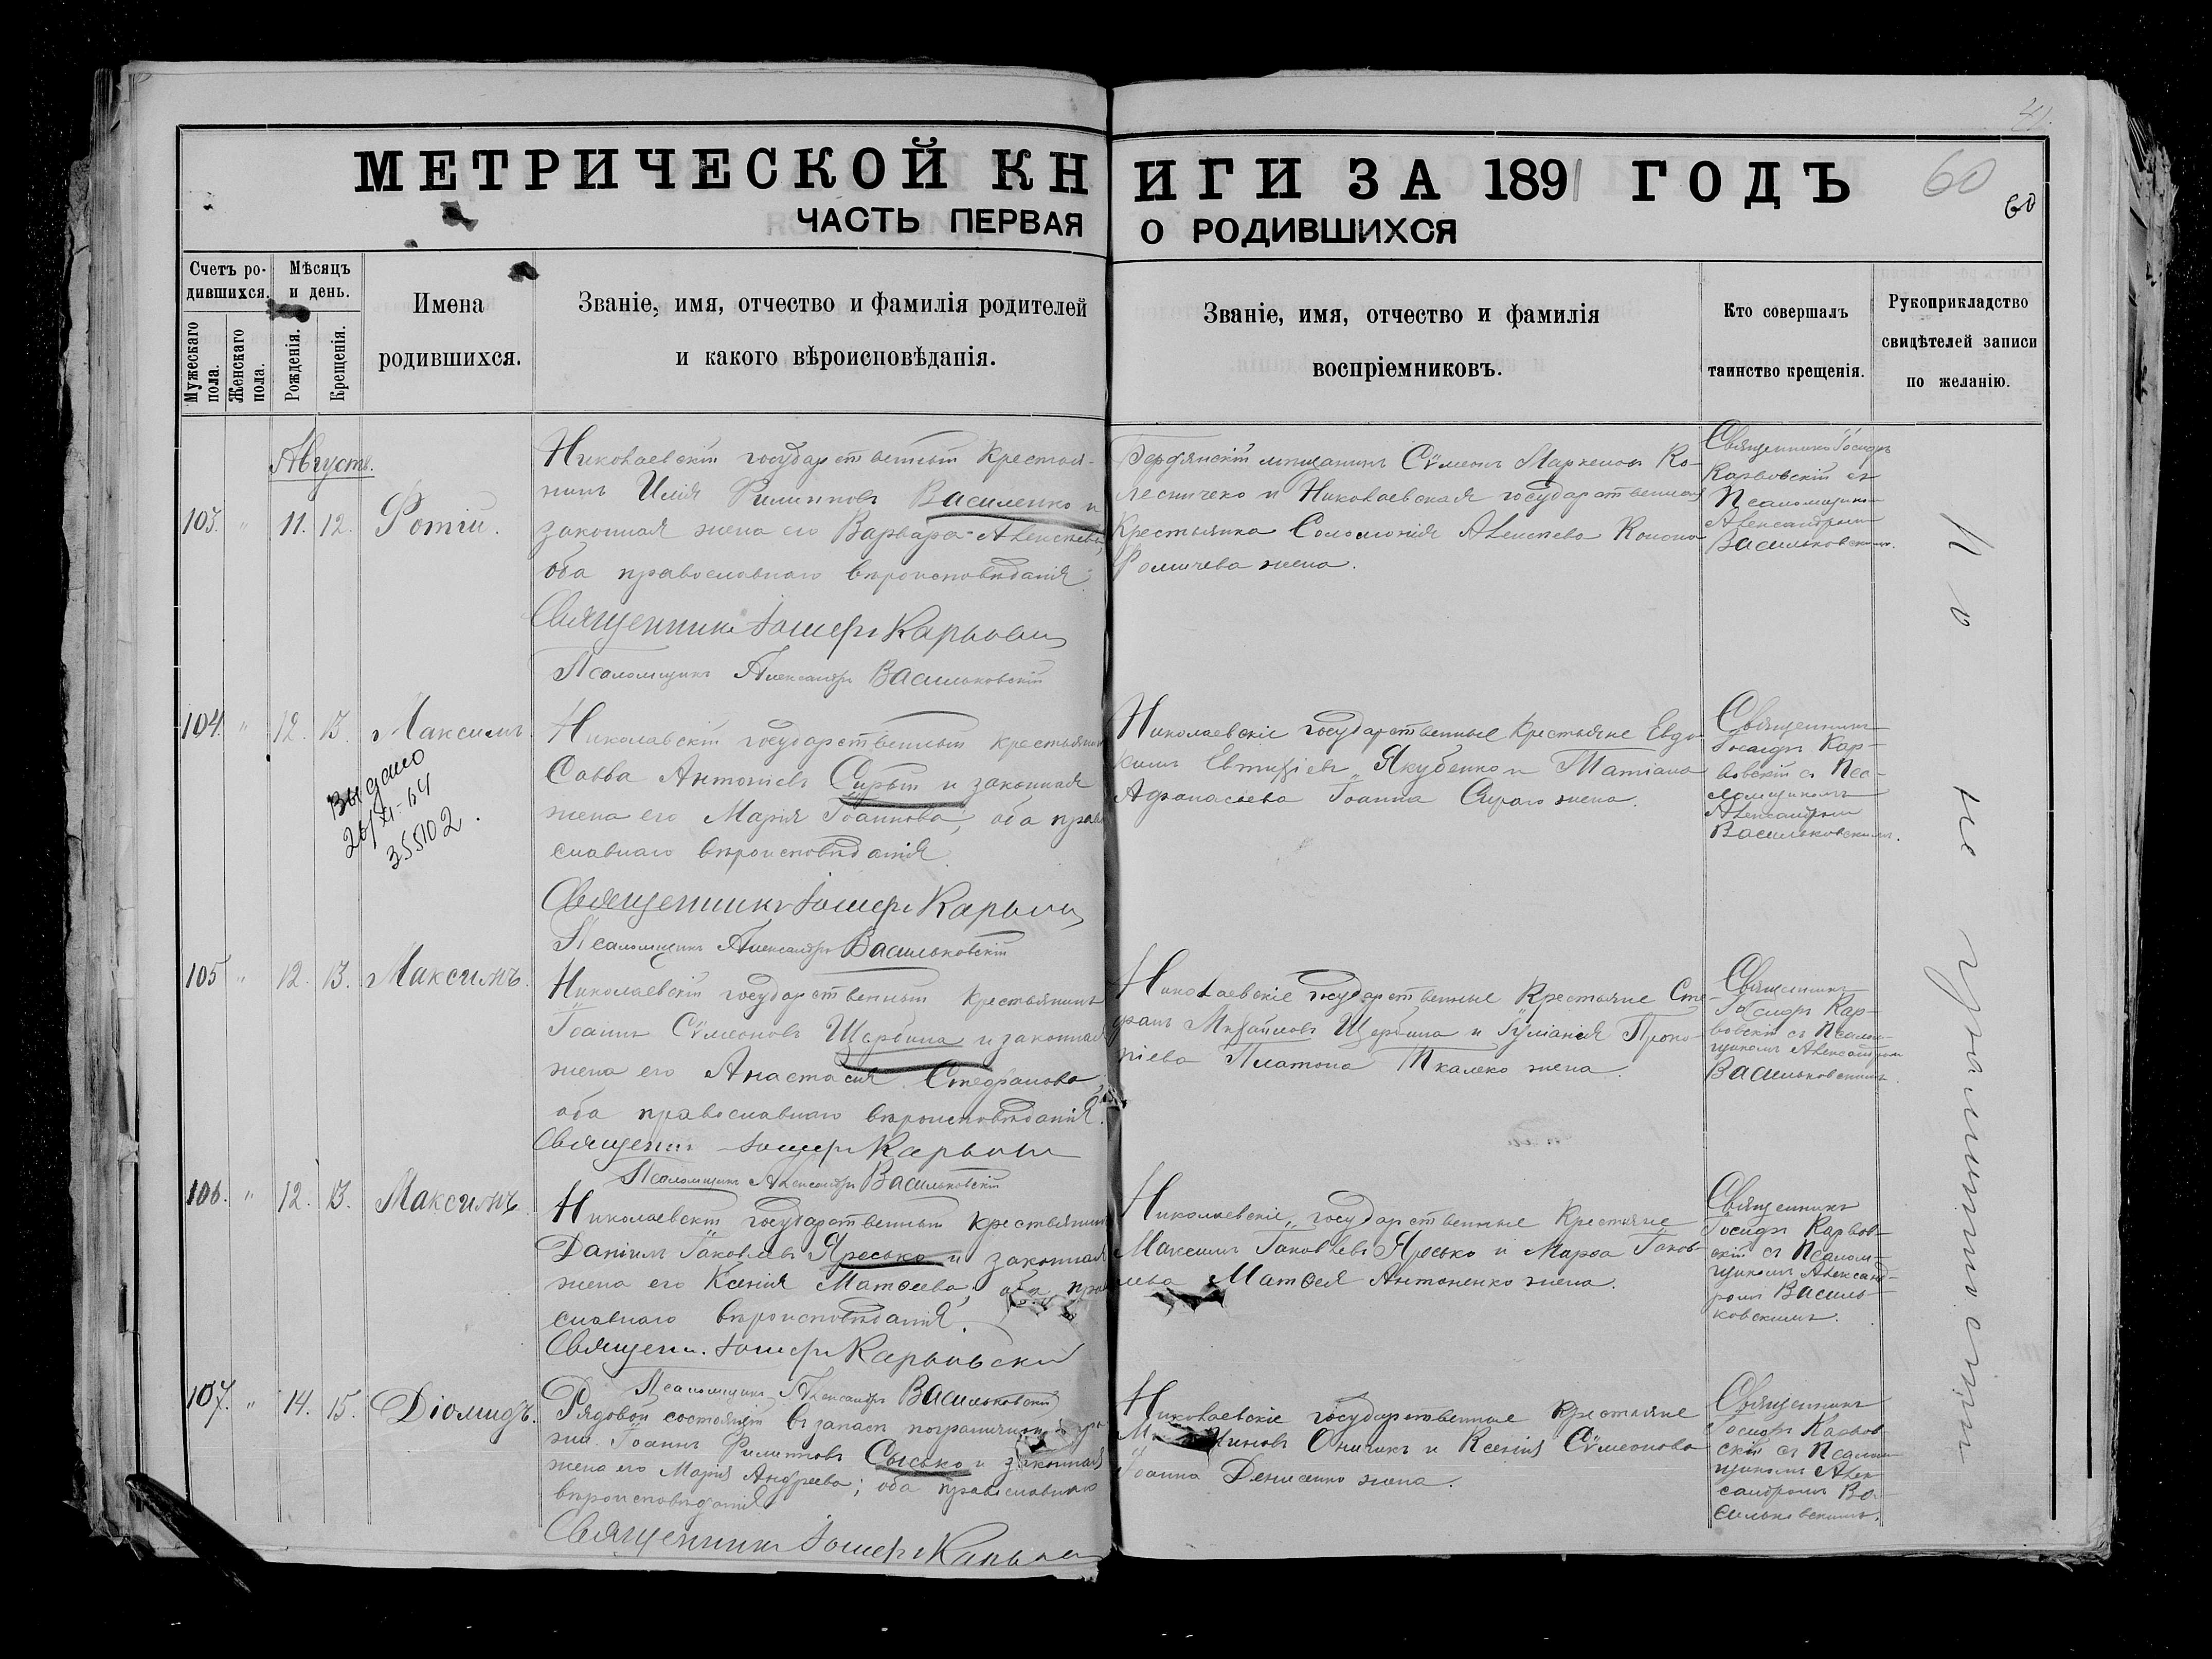 41.
МЕТРИЧЕСКОЙ КНИГИ ЗА 1891 ГОДЪ
60
60
ЧАСТЬ ПЕРВАЯ О РОДИВШИХСЯ
Счетъ родившихся.
Мужескаго пола.
Женскаго пола.
Мѣсяцъ и день.
Рожденія.
Крещенія.
Имена
родившихся.
Званіе, имя, отчество и фамилія родителей
и какого вѣроисповѣданія.
Званіе, имя, отчество и фамилія
воспріемниковъ.
Кто совершалъ
таинство крещенія.
Рукоприкладство
свидѣтелей записи
по желанію.
Августъ.
103. " 11. 12. Фотій.
Николаевскій государственный крестья-
нинъ Илія Филипповъ Василенко и
законная жена его Варвара Алексѣева,
оба православнаго вѣроисповѣданія.
Священникъ Іосифъ
Псаломщикъ Александръ Васильковскій
Бердянскій мѣщанинъ Сѵмеонъ Маркеловъ Ко-
лесниченко и Николаевская государственная
крестьянка Соломонія Алексѣева Конона
Фомичева жена.
Священникъ Іосифъ
Карвовскій съ
Псаломщикомъ
Александромъ
Васильковскимъ.
104. " 12. 13. Максимъ
Выдано
26/XI-64
355102.
Николаевскій государственный крестьянинъ
Савва Антоніевъ Сирый и законная
жена его Марія Іоаннова, оба право
славнаго вѣроисповѣданія.
Священникъ Іосифъ
Псаломщикъ Александръ Васильковскій
Николаевскіе государственные крестьяне Евдо
кимъ Евтихіевъ Якубенко и Татіана
Афанасьева Іоанна Сираго жена.
Священникъ
Іосифъ Кар-
вовскій съ Пса-
ломщикомъ
Александромъ
Васильковскимъ.
105 " 12. 13. Максимъ.
Николаевскій государственный крестьянинъ
Іоаннъ Сѵмеоновъ Щербина и законная
жена его Анастасія Стефанова,
оба православнаго вѣроисповѣданія.
Священникъ Іосифъ
Псаломщикъ Александръ Васильковскій
Николаевскіе государственные крестьяне Сте-
фанъ Михайловъ Щербина и Іуліанія Проко-
піева Платона Ткаленко жена.
Священникъ
Іосифъ Кар-
вовскій съ Псалом-
щикомъ Александромъ
Васильковскимъ.
106. " 12. 13. Максимъ
Николаевскій государственный крестьянинъ
Даніилъ Іаковлевъ Яресько и законная
жена его Ксенія Матѳеева, оба право
славнаго вѣроисповѣданія.
Священ. Іосифъ Карвовскій
Псаломщикъ Александръ Васильковскій
Николаевскіе государственные крестьяне
Максимъ Іаковлевъ Яресько и Марѳа Іаков-
лева Матѳея Антоненко жена.
Священникъ
Іосифъ Карвов-
скій съ Псалом-
щикомъ Александ-
ромъ Василь-
ковскимъ.
107. " 14. 15. Діомидъ.
Рядовой состоящій въ запасѣ пограничной стра
жи Іоаннъ Филипповъ Сысько и законная
жена его Марія Андреева; оба православнаго
вѣроисповѣданія.
Священникъ Іосифъ
Николаевскіе государственные крестьяне
Оничикъ и Ксенія Сѵмеонова
Іоанна Денисенко жена.
Священникъ
Іосифъ Карвов
скій съ Псалом
щикомъ Алек
сандромъ Ва-
сильковскимъ.
По неграмотности